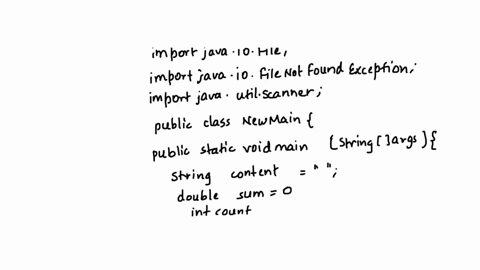 import java.io.File,
import java.io.FileNotFound Exception;
import java.util.scanner;
public class NewMain {
public static void main (String[]args){
String content = " ";
double sum = 0
int count